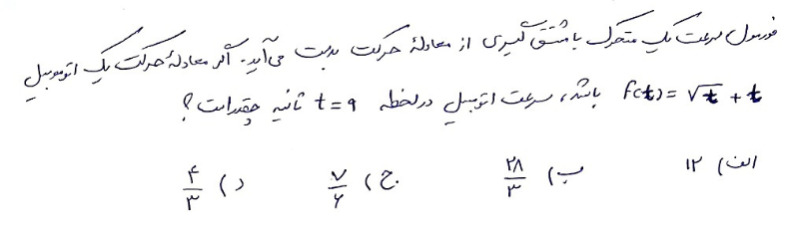 فرمول سرعت یک متحرک با مشتق گیری از معادلهٔ حرکت بدست می‌آید. اگر معادلهٔ حرکت یک اتومبیل
f(t) = √t + t باشد، سرعت اتومبیل در لحظه t = 9 ثانیه چقدر است؟
الف) ۱۲ ب) ۲۸/۳ ج) ۷/۶ د) ۴/۳